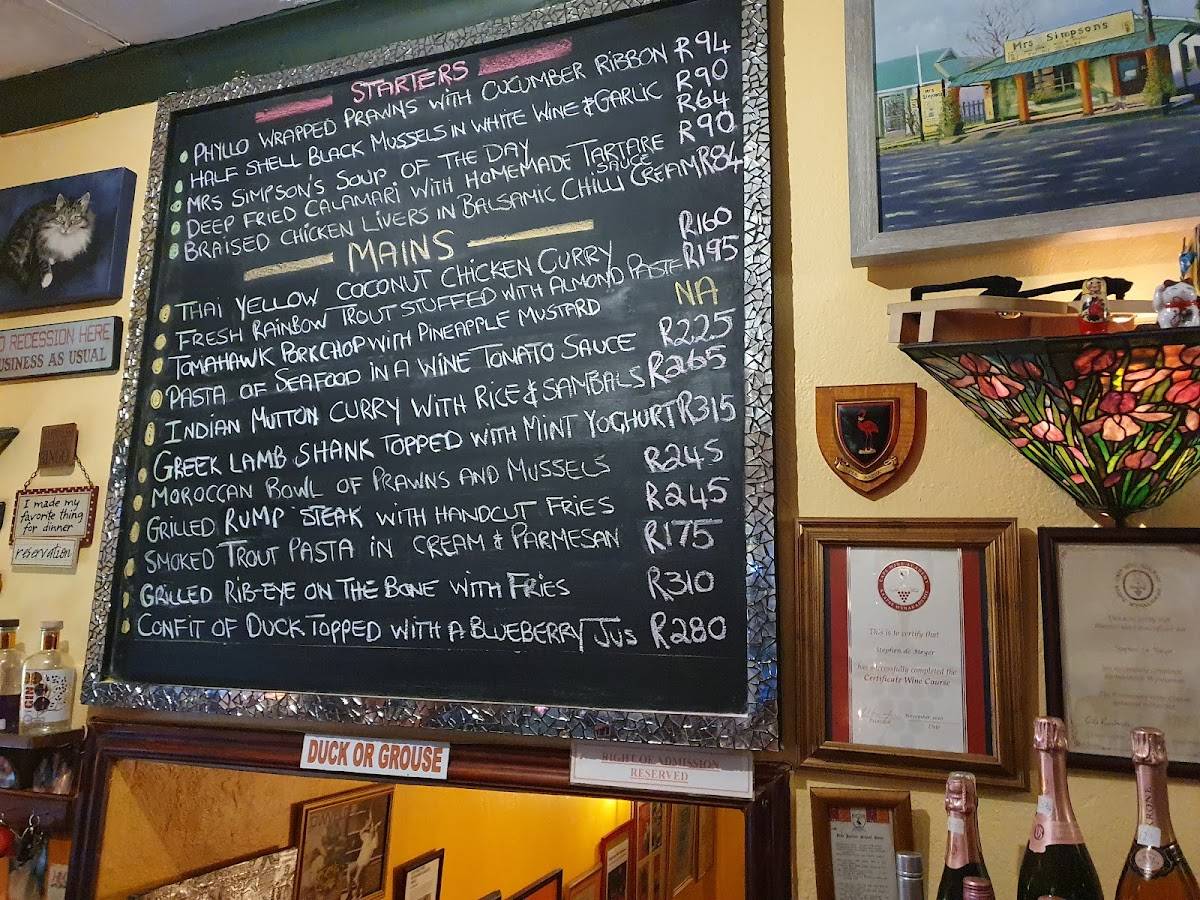 STARTERS
PHYLLO WRAPPED PRAWNS WITH CUCUMBER RIBBON R94
HALF SHELL BLACK MUSSELS IN WHITE WINE & GARLIC R90
MRS SIMPSON'S SOUP OF THE DAY R64
DEEP FRIED CALAMARI WITH HOMEMADE TARTARE SAUCE R90
BRAISED CHICKEN LIVERS IN BALSAMIC CHILLI CREAM R84
MAINS
THAI YELLOW COCONUT CHICKEN CURRY R160
FRESH RAINBOW TROUT STUFFED WITH ALMOND PASTE R195
TOMAHAWK PORK CHOP WITH PINEAPPLE MUSTARD NA
PASTA OF SEAFOOD IN A WINE TOMATO SAUCE R225
INDIAN MUTTON CURRY WITH RICE & SAMBALS R265
GREEK LAMB SHANK TOPPED WITH MINT YOGHURT R315
MOROCCAN BOWL OF PRAWNS AND MUSSELS R245
GRILLED RUMP STEAK WITH HANDCUT FRIES R245
SMOKED TROUT PASTA IN CREAM & PARMESAN R175
GRILLED RIB-EYE ON THE BONE WITH FRIES R310
CONFIT OF DUCK TOPPED WITH A BLUEBERRY JUS R280
DUCK OR GROUSE
RIGHT OF ADMISSION
RESERVED
Mrs Simpson's
RECESSION HERE
BUSINESS AS USUAL
I made my
favorite thing
for dinner
reservation
GIN
This is to certify that
Stephen de Meyer
has successfully completed the
Certificate Wine Course